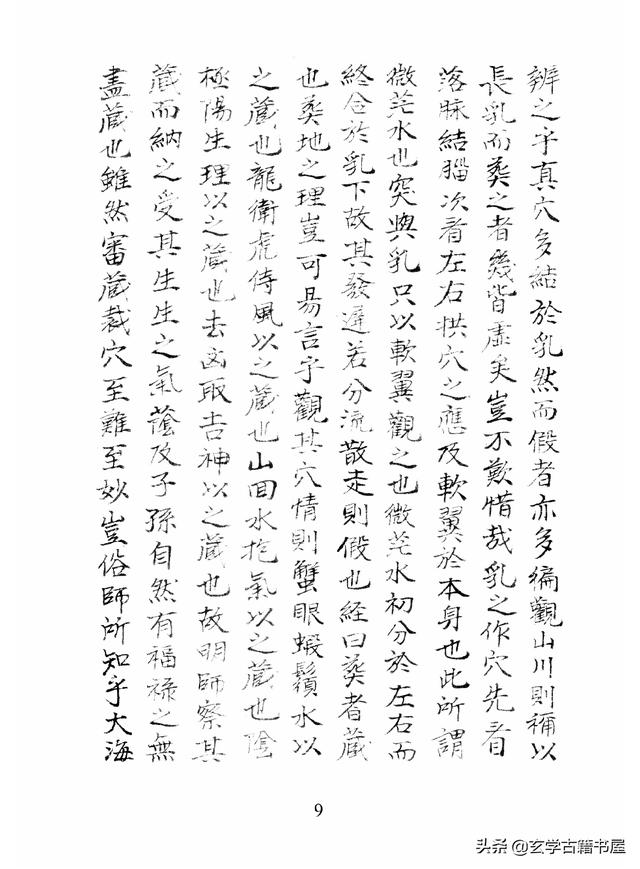 辨之乎真穴多結於乳然而假者亦多徧觀山川則稱以
長乳而葬之者幾皆虛矣豈不歎惜哉乳之作穴先看
落脉結腦次看左右拱穴之應及軟翼於本身也此所謂
微茫水也突與乳只以軟翼觀之也微茫水初分於左右而
終合於乳下故其發遲若分流散走則假也経曰葬者藏
也葬地之理豈可易言乎觀其穴情則蟹眼蝦鬚水以
之藏也龍衛虎侍風以之藏也山回水抱氣以之藏也陰
極陽生理以之藏也去凶取吉神以之藏也故明師察其
藏而納之受其生生之氣蔭及子孫自然有福祿之無
盡藏也雖然審藏裁穴至難至妙豈俗師所知乎大海
9
头条@玄学古籍书屋